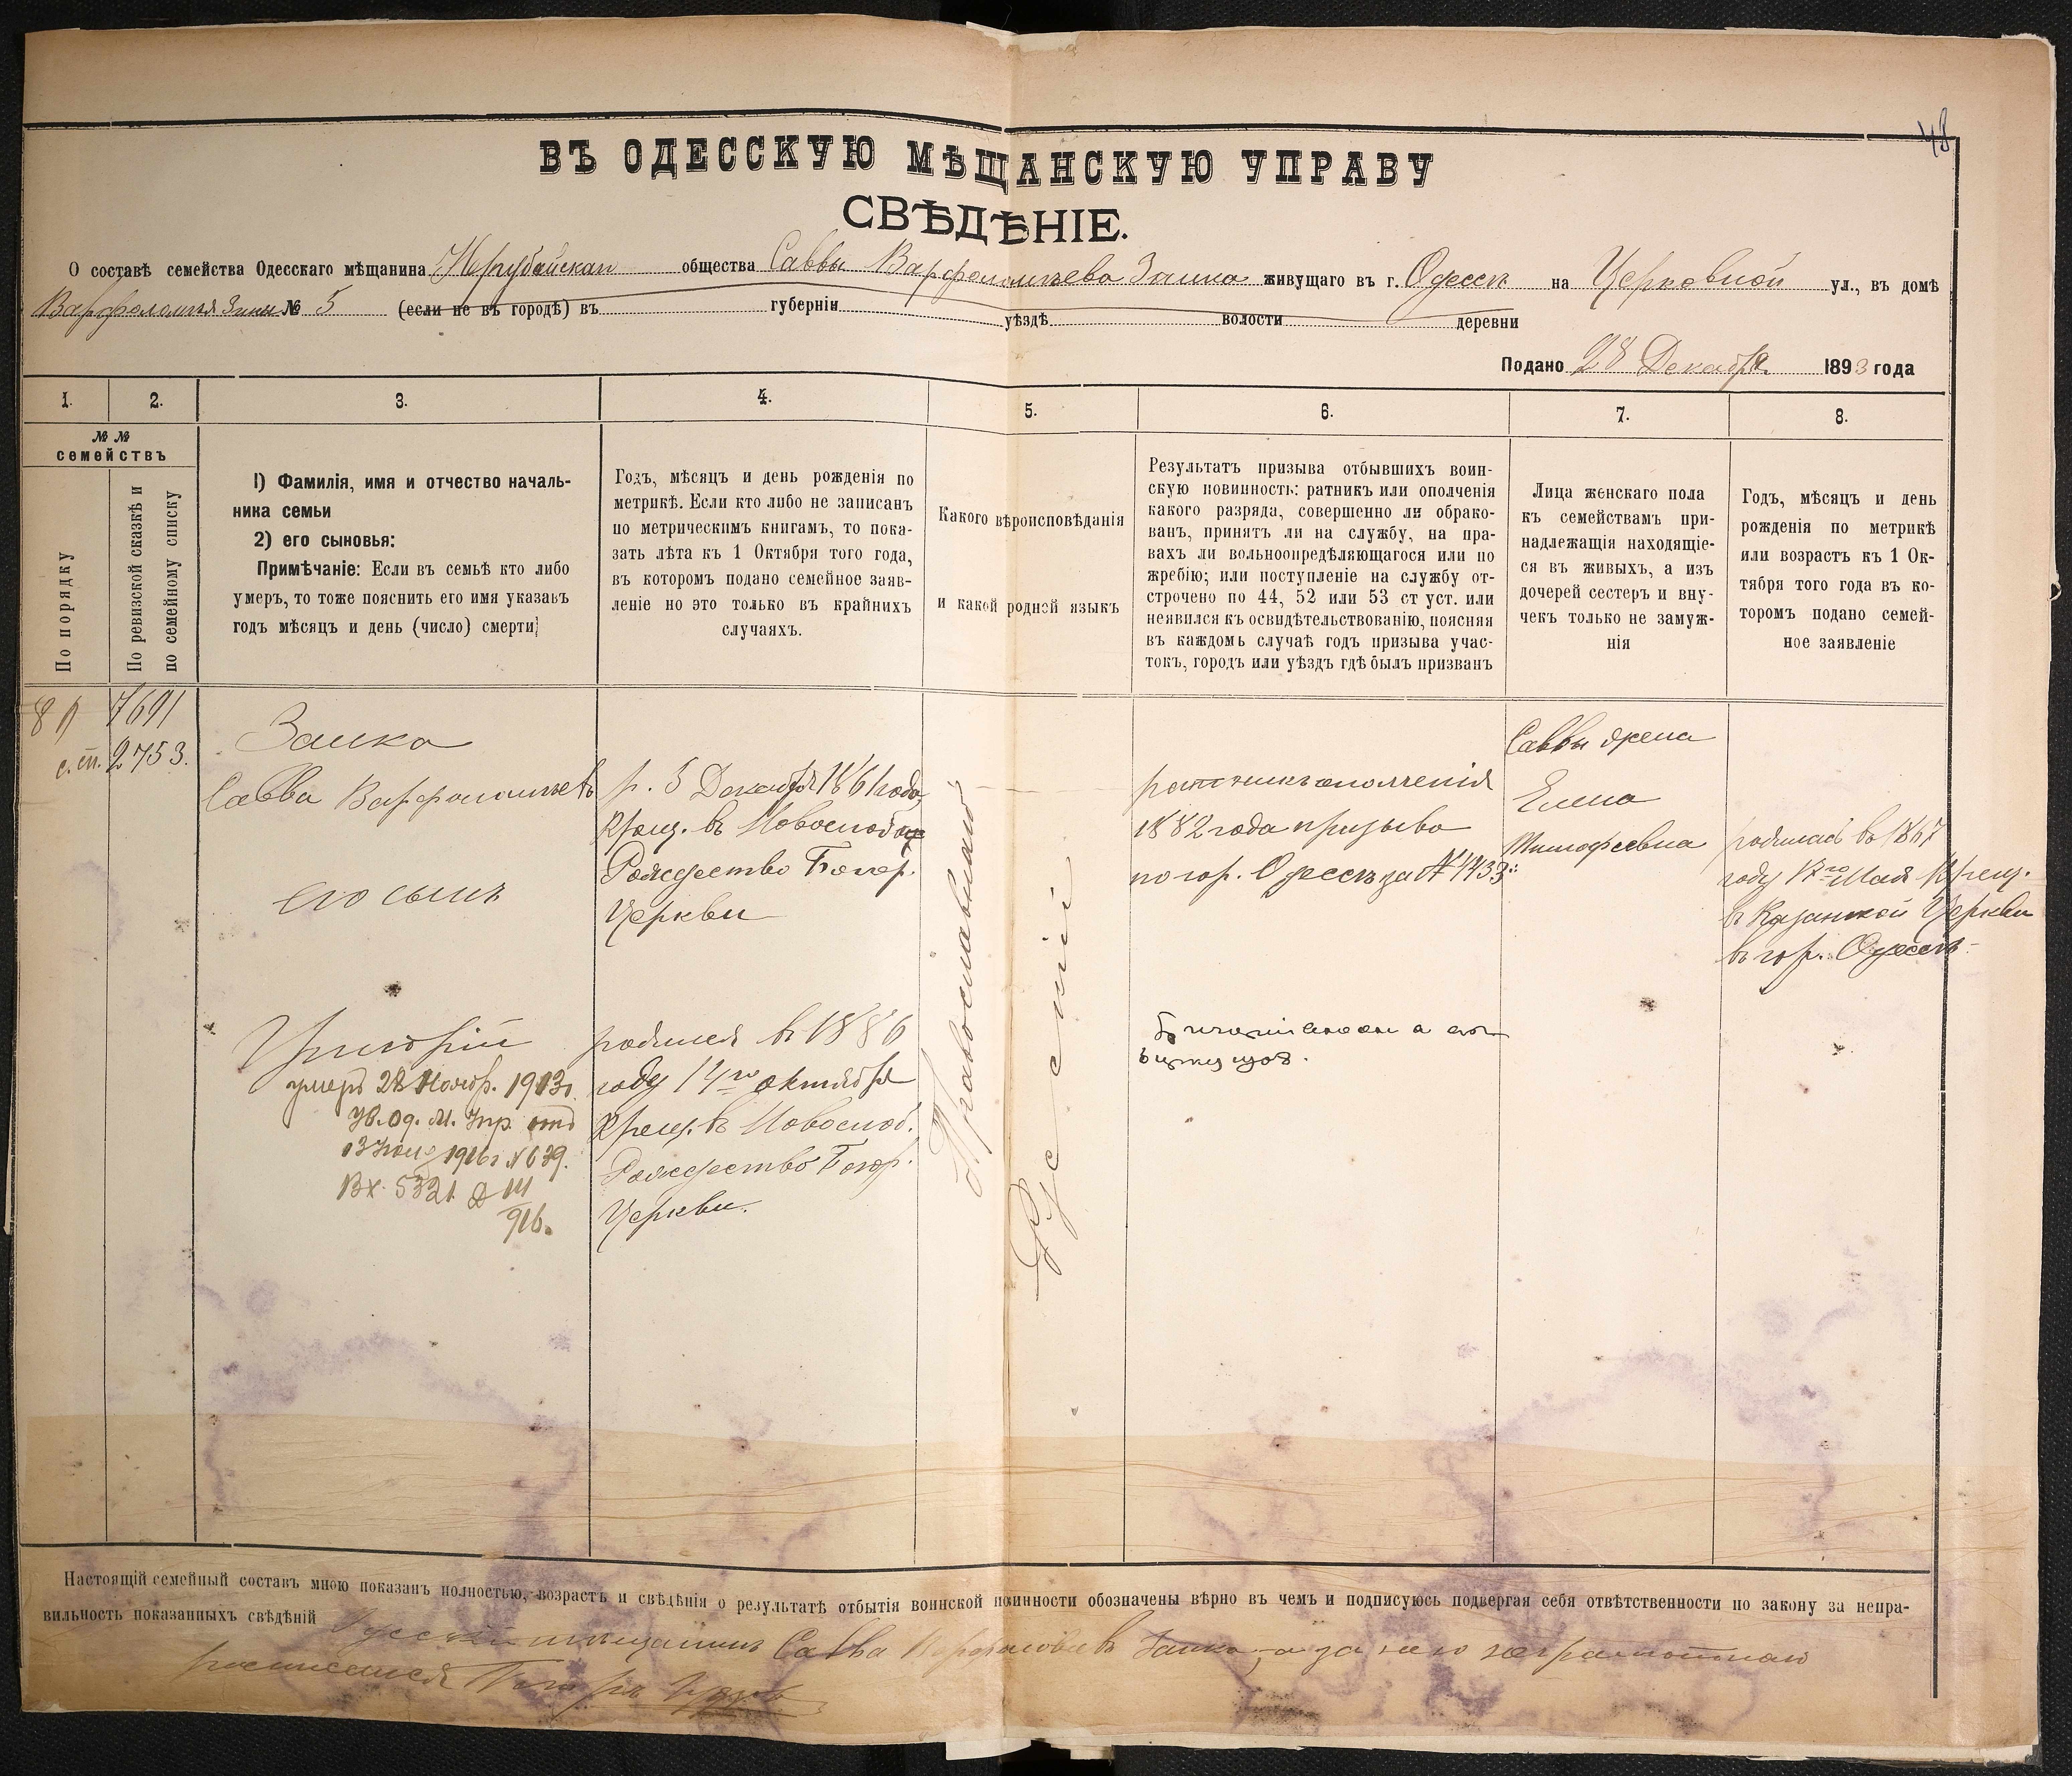 48
ВЪ ОДЕССКУЮ МѢЩАНСКУЮ УПРАВУ
СВѢДѢНІЕ.
О составѣ семейства Одесскаго мѣщанина Нерубайскаго общества Саввы Варфоломѣева Заика живущаго въ г. Одессѣ на Церковной ул., въ домѣ
Варфоломѣя Заики № 5 (если не въ городѣ) въ губерніи уѣздѣ волости деревни
Подано 28 Декабря 1893 года
1. 2. 3. 4. 5. 6. 7. 8.
№ №
семействъ
По порядку
По ревизской сказкѣ и
по семейному списку
1) Фамилія, имя и отчество началь-
ника семьи
2) его сыновья:
Примѣчаніе: Если въ семьѣ кто либо
умеръ, то тоже пояснить его имя указавъ
годъ мѣсяцъ и день (число) смерти;
Годъ, мѣсяцъ и день рожденія по
метрикѣ. Если кто либо не записанъ
по метрическимъ книгамъ, то пока-
зать лѣта къ 1 Октября того года,
въ которомъ подано семейное заяв-
леніе но это только въ крайнихъ
случаяхъ.
Какого вѣроисповѣданія
и какой родной языкъ
Результатъ призыва отбывшихъ воин-
скую повинность: ратникъ или ополченія
какого разряда, совершенно ли обрако-
ванъ, принятъ ли на службу, на пра-
вахъ ли вольноопредѣляющагося или по
жребію; или поступленіе на службу от-
строчено по 44, 52 или 53 ст уст. или
неявился къ освидѣтельствованію, поясняя
въ каждомъ случаѣ годъ призыва учас-
токъ, городъ или уѣздъ гдѣ былъ призванъ
Лица женскаго пола
къ семействамъ при-
надлежащія находящіе-
ся въ живыхъ, а изъ
дочерей сестеръ и вну-
чекъ только не замуж-
нія
Годъ, мѣсяцъ и день
рожденія по метрикѣ
или возрастъ къ 1 Ок-
тября того года въ ко-
торомъ подано семей-
ное заявленіе
7691
с. сп. 2753.
Заика
Савва Варфоломѣевъ
его сынъ
Григорій
умеръ 28 Ноябр. 1913г.
Ув. Од. М. Упр. отъ
1916г №639.
Вх. 5321
916.
р. 5 Декабря 1861 года,
Крещ. въ Новослобод
Рождество Богор.
Церкви
родился въ 1886
году 14го октября
Крещ. въ Новослоб.
Рождество Богор.
Церкви.
Православнаго
Русскій
ратникъ ополченія
1882 года призыва
по гор. Одессѣ за № 1433:
Саввы жена
Елена
Тимофеевна
родилась въ 1867
году Мая Крещ.
въ Казанской Церкви
въ гор. Одессѣ
Настоящій семейный составъ мною показанъ полностью, возрастъ и свѣдѣнія о результатѣ отбытія воинской повинности обозначены вѣрно въ чемъ и подписуюсь подвергая себя отвѣтственности по закону за непра-
вильность показанныхъ свѣдѣній мѣщанинъ Савва Заика, а за него неграмотнаго
росписался